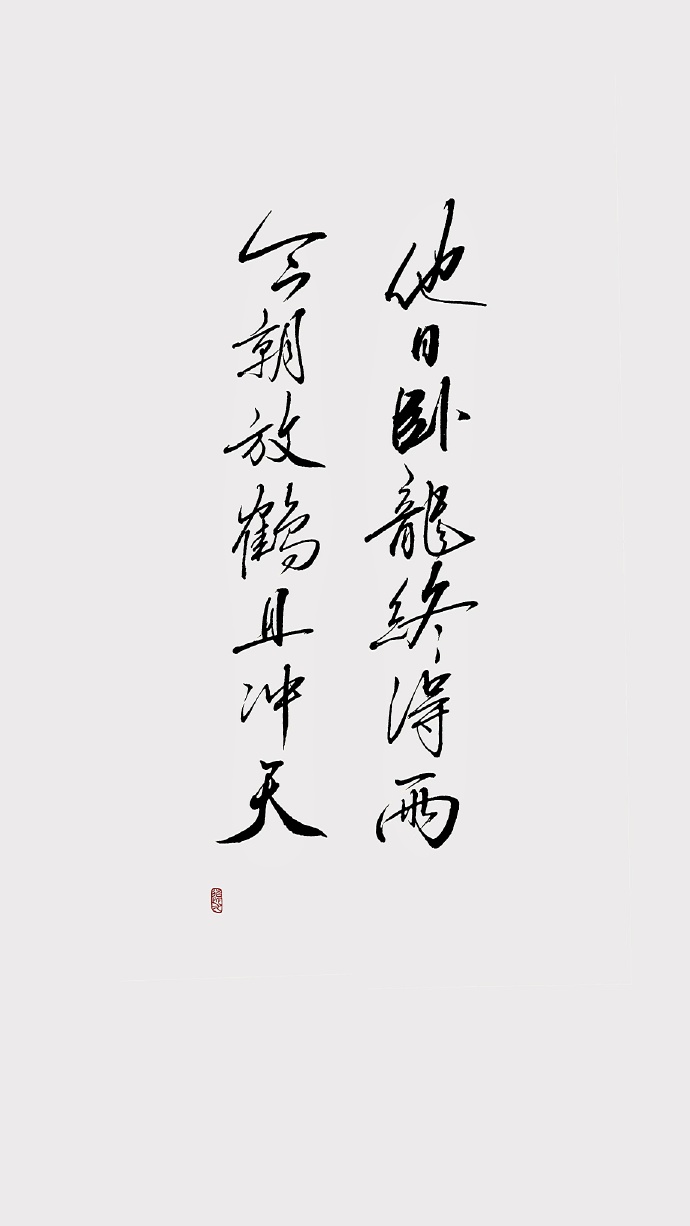 他日卧龍終得雨
今朝放鶴且冲天